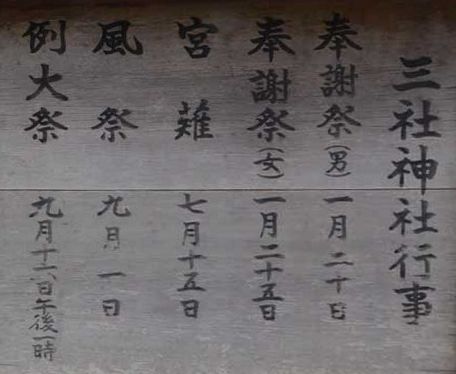 三社神社行事
奉謝祭(男) 一月二十日
奉謝祭(女) 一月二十五日
宮薙 七月十五日
風祭 九月一日
例大祭 九月十六日午後一時